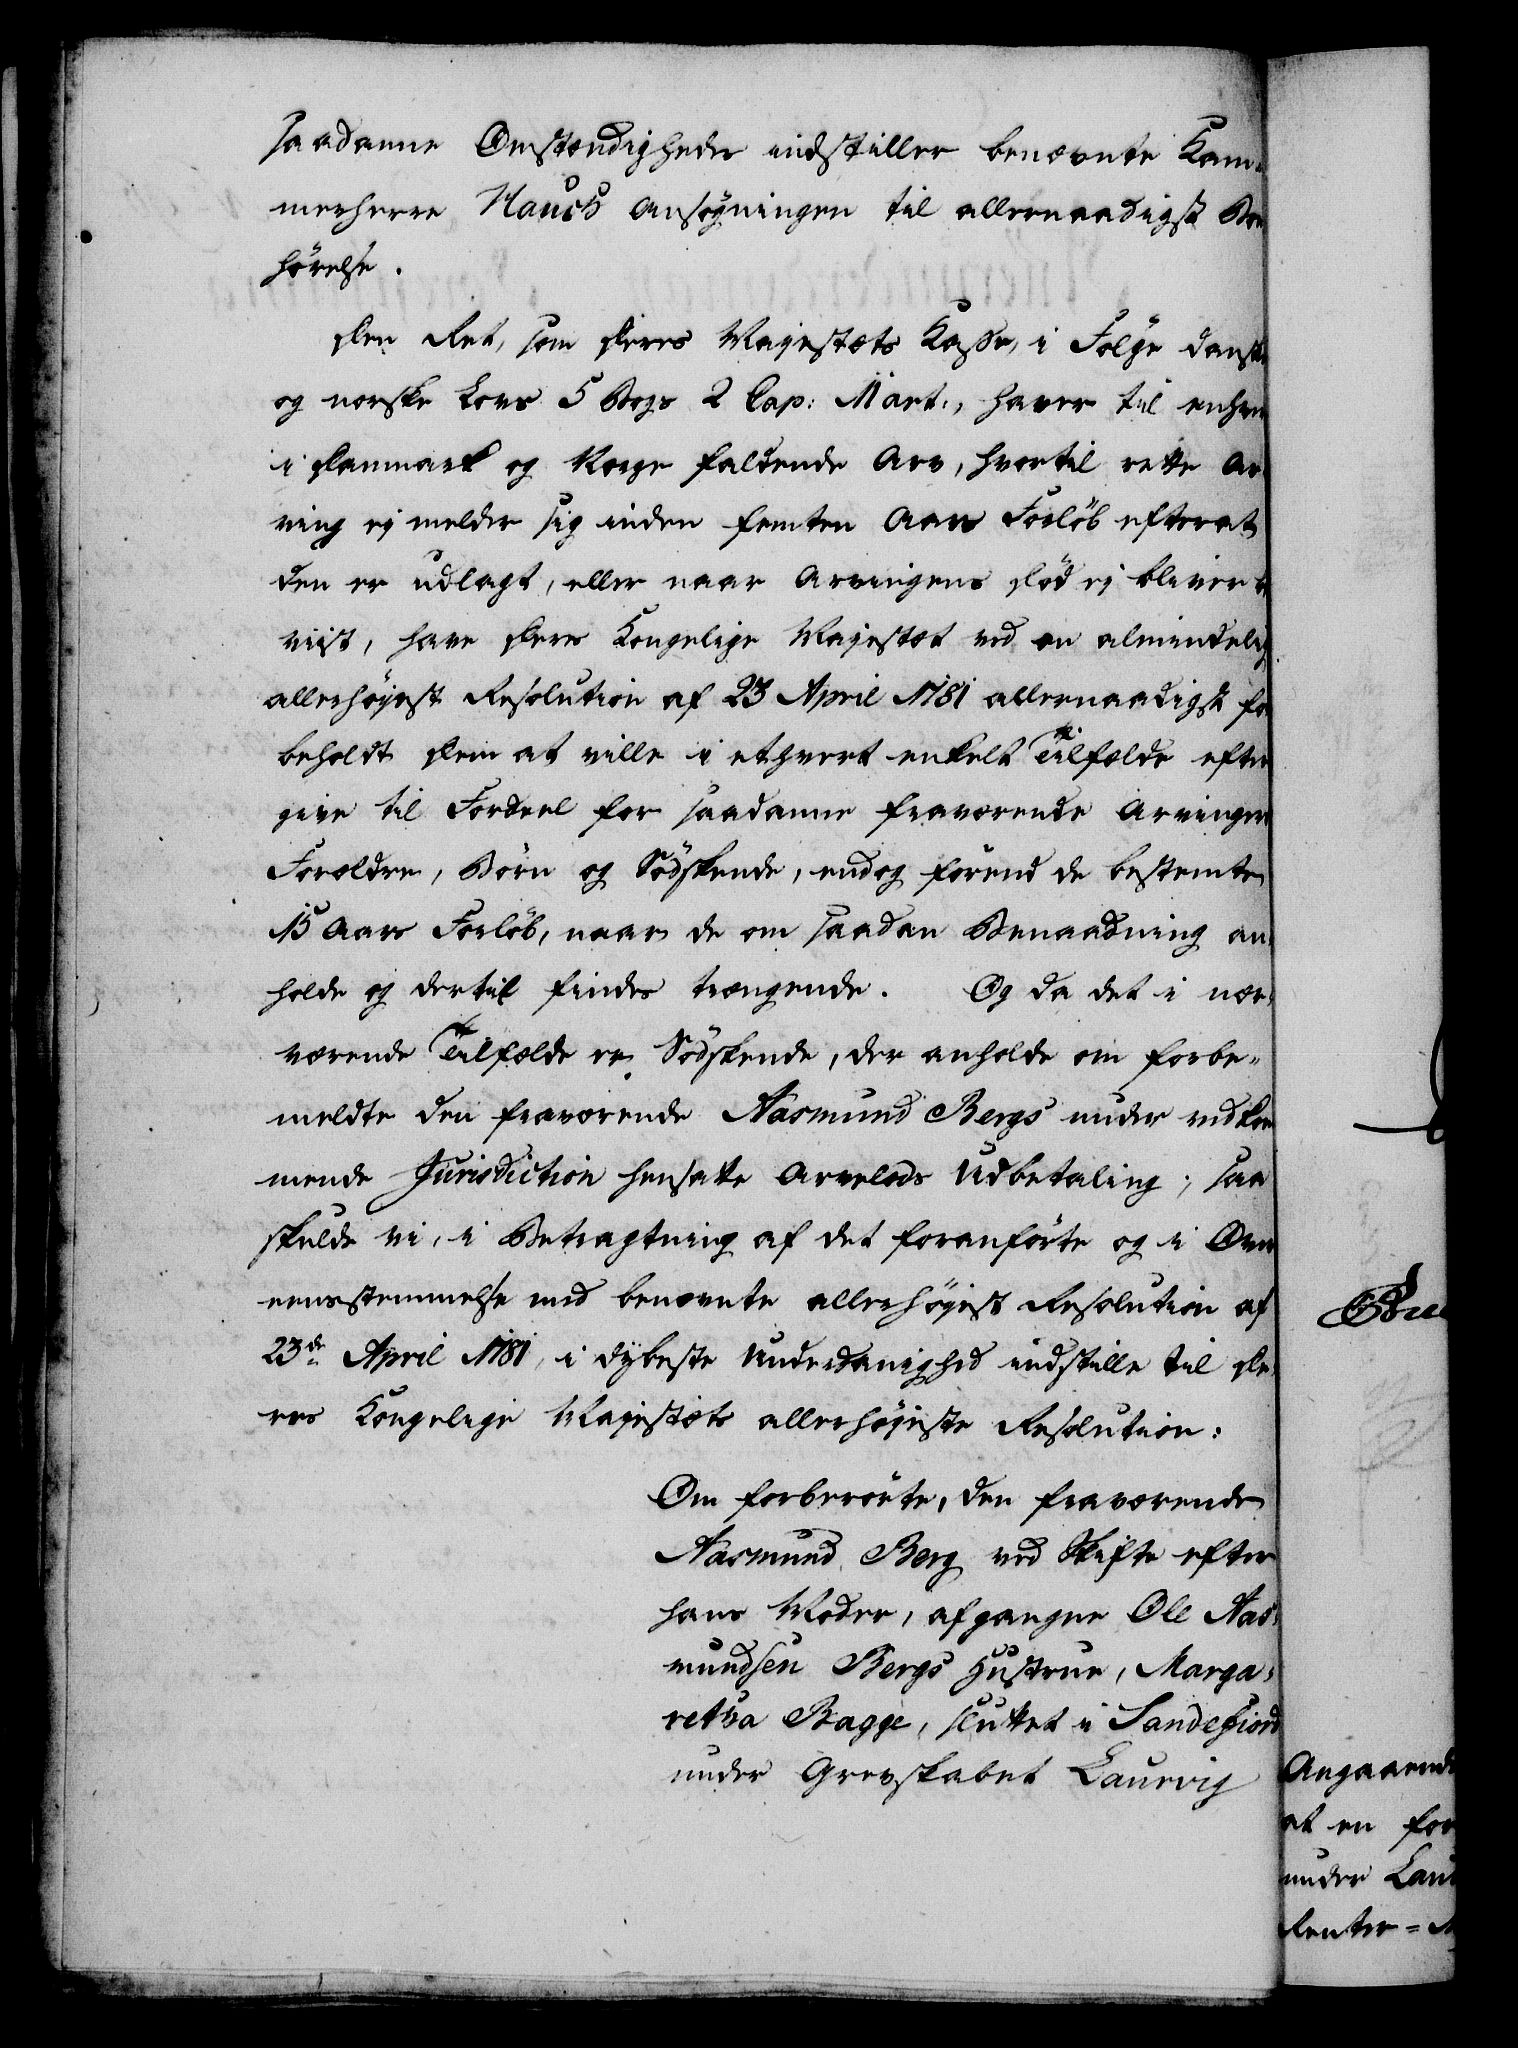 saadanne Omstændigheder indstiller benævnte Kam-
merherre Hauch Ansøgningen til allernaadigst Bøn-
hørelse.
Den Ret, som Deres Majestæts Kasse, i Følge danske
og norske Lovs 5 Bogs 2 Cap: Art:, haver til enhver
i Danmark og Norge faldende Arv, hvortil rette Ar-
ving ej melder sig inden femten Aars Forløb efterat
den er udlagt, eller naar Arvingens Død ej bliver be-
viist, have Deres Kongelige Majestæt ved en almindelig
allerhøyest Resolution af 23 April 1781 allernaadigst for-
beholdt Dem at ville i ethvert enkelt Tilfælde efter-
give til Fordeel for saadanne fraværende Arvingers
Forældre, Børn og Södskende, endog förend de bestemte
15 Aars Forløb, naar de om saadan Benaadning an-
holde og dertil findes trængende. Og da det i nær-
værende Tilfælde er Södskende, der anholde om forbe-
meldte den fraværende Aasmund Bergs under vedkom-
mende Jurisdiction hensatte Arvelods Udbetaling; saa
skulde vi, i Betragtning af det foranførte og i Over-
eensstemmelse med benævnte allerhøyest Resolution af
23de April 1781, i dybeste Underdanighed indstille til De-
res Kongelige Majestæts allerhøyeste Resolution:
Om forberørte, den fraværende
Aasmund Berg ved Skifte efter
hans Moder, afgangne Ole Aas-
mundsen Bergs Hustrue, Marga-
retha Bagge, sluttet i Sandefiord
under Grevskabet Laurvig
Angaaende
at en for
under Laur
Renter-